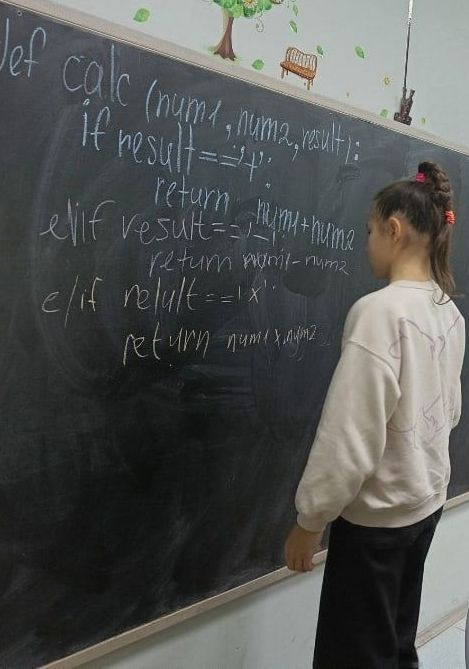 def calc (num1, num2, result):
if result=='+':
return num1+num2
elif result=='-':
return num1-num2
elif relult=='x':
return num1x,num2